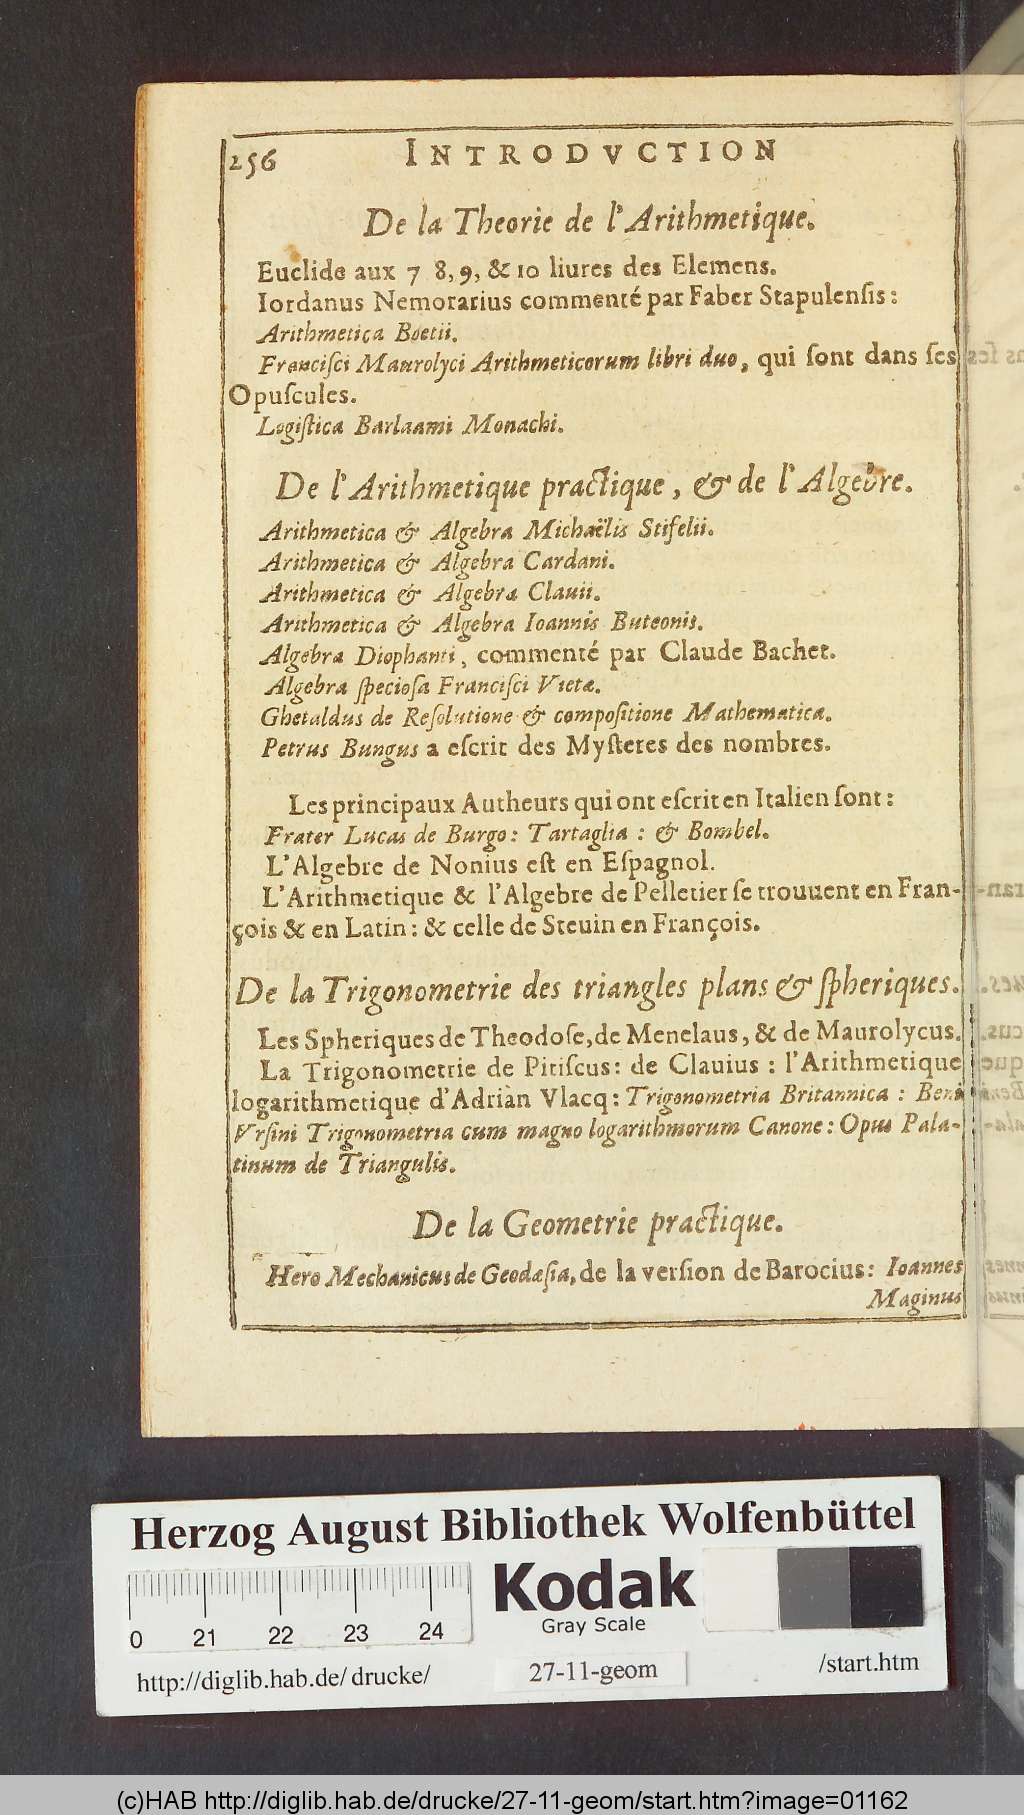 256 INTRODVCTION
De la Theorie de l'Arithmetique.
Euclide aux 7 8, 9, & 10 liures des Elemens.
Iordanus Nemorarius commenté par Faber Stapulenſis:
Arithmetica Boetii.
Franciſci Maurolyci Arithmeticorum libri duo, qui ſont dans ſes
Opuſcules.
Logiſtica Barlaami Monachi.
De l'Arithmetique practique, & de l'Algebre.
Arithmetica & Algebra Michaëlis Stifelii.
Arithmetica & Algebra Cardani.
Arithmetica & Algebra Clauii.
Arithmetica & Algebra Ioannis Buteonis.
Algebra Diophanti, commenté par Claude Bachet.
Algebra ſpecioſa Franciſci Vietæ.
Ghetaldus de Reſolutione & compoſitione Mathematica.
Petrus Bungus a eſcrit des Myſteres des nombres.
Les principaux Autheurs qui ont eſcrit en Italien ſont:
Frater Lucas de Burgo: Tartaglia: & Bombel.
L'Algebre de Nonius eſt en Eſpagnol.
L'Arithmetique & l'Algebre de Pelletier ſe trouuent en Fran-
çois & en Latin: & celle de Steuin en François.
De la Trigonometrie des triangles plans & ſpheriques.
Les Spheriques de Theodoſe, de Menelaus, & de Maurolycus.
La Trigonometrie de Pitiſcus: de Clauius: l'Arithmetique
logarithmetique d'Adrian Vlacq: Trigonometria Britannica: Beni
Vrſini Trigonometria cum magno logarithmorum Canone: Opus Pala-
tinum de Triangulis.
De la Geometrie practique.
Hero Mechanicus de Geodæſia, de la verſion de Barocius: Ioannes
Maginus
Herzog August Bibliothek Wolfenbüttel
Kodak
Gray Scale
0 21 22 23 24
http://diglib.hab.de/drucke/ 27-11-geom /start.htm
(c)HAB http://diglib.hab.de/drucke/27-11-geom/start.htm?image=01162